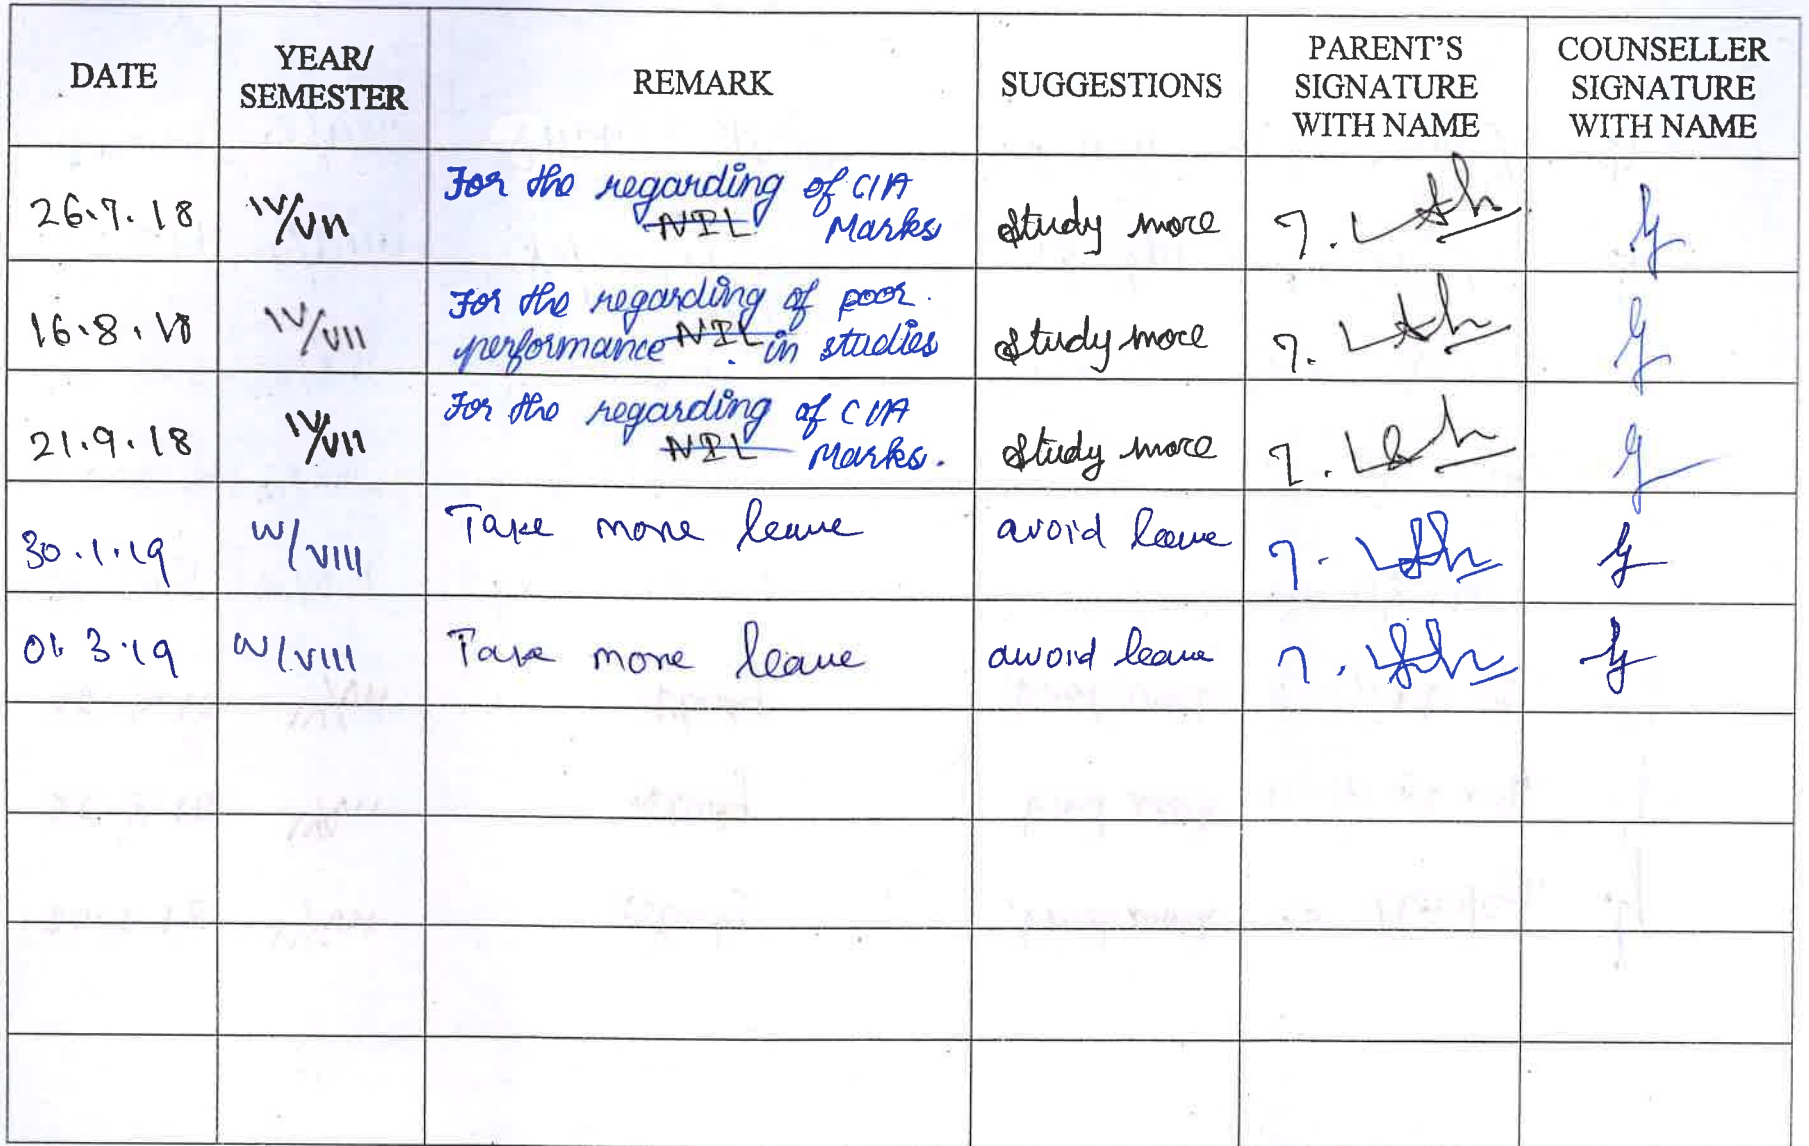 DATE
YEAR/
SEMESTER
REMARK
SUGGESTIONS
PARENT'S
SIGNATURE
WITH NAME
COUNSELLER
SIGNATURE
WITH NAME
26.7.18
IV/VII
For the regarding of CIA
NIL Marks
Study more
16.8.18
IV/VII
For the regarding of poor
performance NIL in studies
Study more
21.9.18
IV/VII
For the regarding of CIA
NIL Marks.
Study more
30.1.19
IV/VIII
Take more leave
avoid leave
01.3.19
IV/VIII
Take more leave
avoid leave